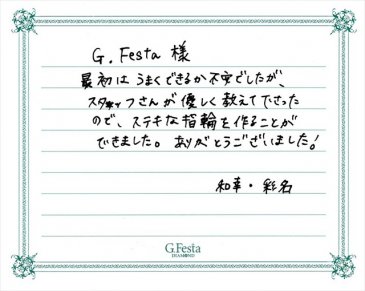 G.Festa 様
最初は うまくできるか不安でしたが、
スタッフさんが優しく教えて下さった
ので、ステキな指輪を作ることが
できました。ありがとうございました!
和幸・彩名
G.Festa
DIAMOND